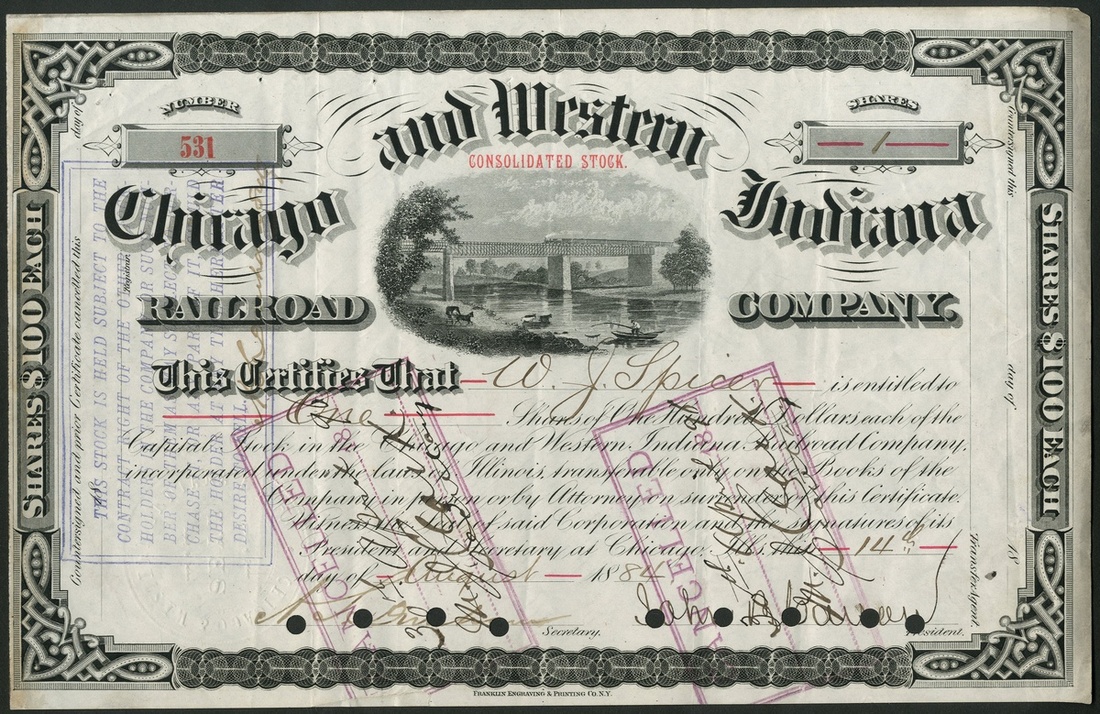 NUMBER
531
and Western
CONSOLIDATED STOCK.
SHARES
1
Chicago
Indiana
RAILROAD
COMPANY.
This Certifies That W. J. Spicer is entitled to
One Shares of One Hundred Dollars each of the
Capital Stock in the Chicago and Western Indiana Railroad Company,
incorporated under the laws of Illinois, transferable only on the Books of the
Company in person or by Attorney on surrender of this Certificate.
Witness the Seal of said Corporation and the signatures of its
President and Secretary at Chicago, Ills. this 14th
day of August 1884
Secretary.
John B. Carson
President.
FRANKLIN ENGRAVING & PRINTING CO. N.Y.
SHARES $100 EACH
SHARES $100 EACH
Countersigned and prior Certificate cancelled this
day of
18
Registrar.
Countersigned this
day of
18
Transfer Agent.
THIS STOCK IS HELD SUBJECT TO THE
CONTRACT RIGHT OF THE OTHER
HOLDERS BY THE COMPANY OR SUC
BER OF THEM AS MAY SO ELECT
CHASE OR ANY PART OF IT WHEN
THE HOLDER AT ANY TIME HEREAFTER
DESIRE TO SELL
CANCELLED
188
CANCELLED
188